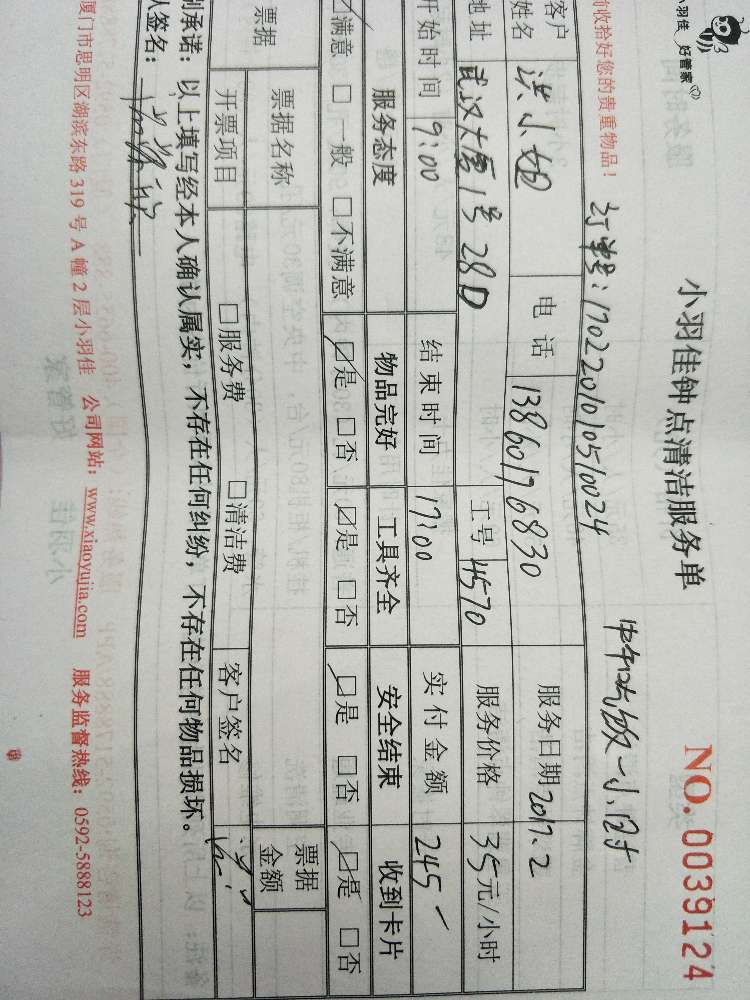 小羽佳 好管家
小羽佳钟点清洁服务单
NO.0039124
前收拾好您的贵重物品！
订单号：1702201010510024
中午吃饭一小时
客户姓名 洪小姐 电话 13860176830 服务日期 2017.2
地址 武汉大厦1号28D 工号 4570 服务价格 35元/小时
开始时间 9:00 结束时间 17:00 实付金额 245
服务态度 物品完好 工具齐全 安全结束 收到卡片
☑满意 □一般 □不满意 ☑是 □否 ☑是 □否 ☑是 □否 ☑是 □否
票据 票据名称 票据金额
开票项目 □服务费 □清洁费 客户签名
别承诺：以上填写经本人确认属实，不存在任何纠纷，不存在任何物品损坏。
人签名：
厦门市思明区湖滨东路319号A幢2层小羽佳 公司网站：www.xiaoyujia.com 服务监督热线：0592-5888123